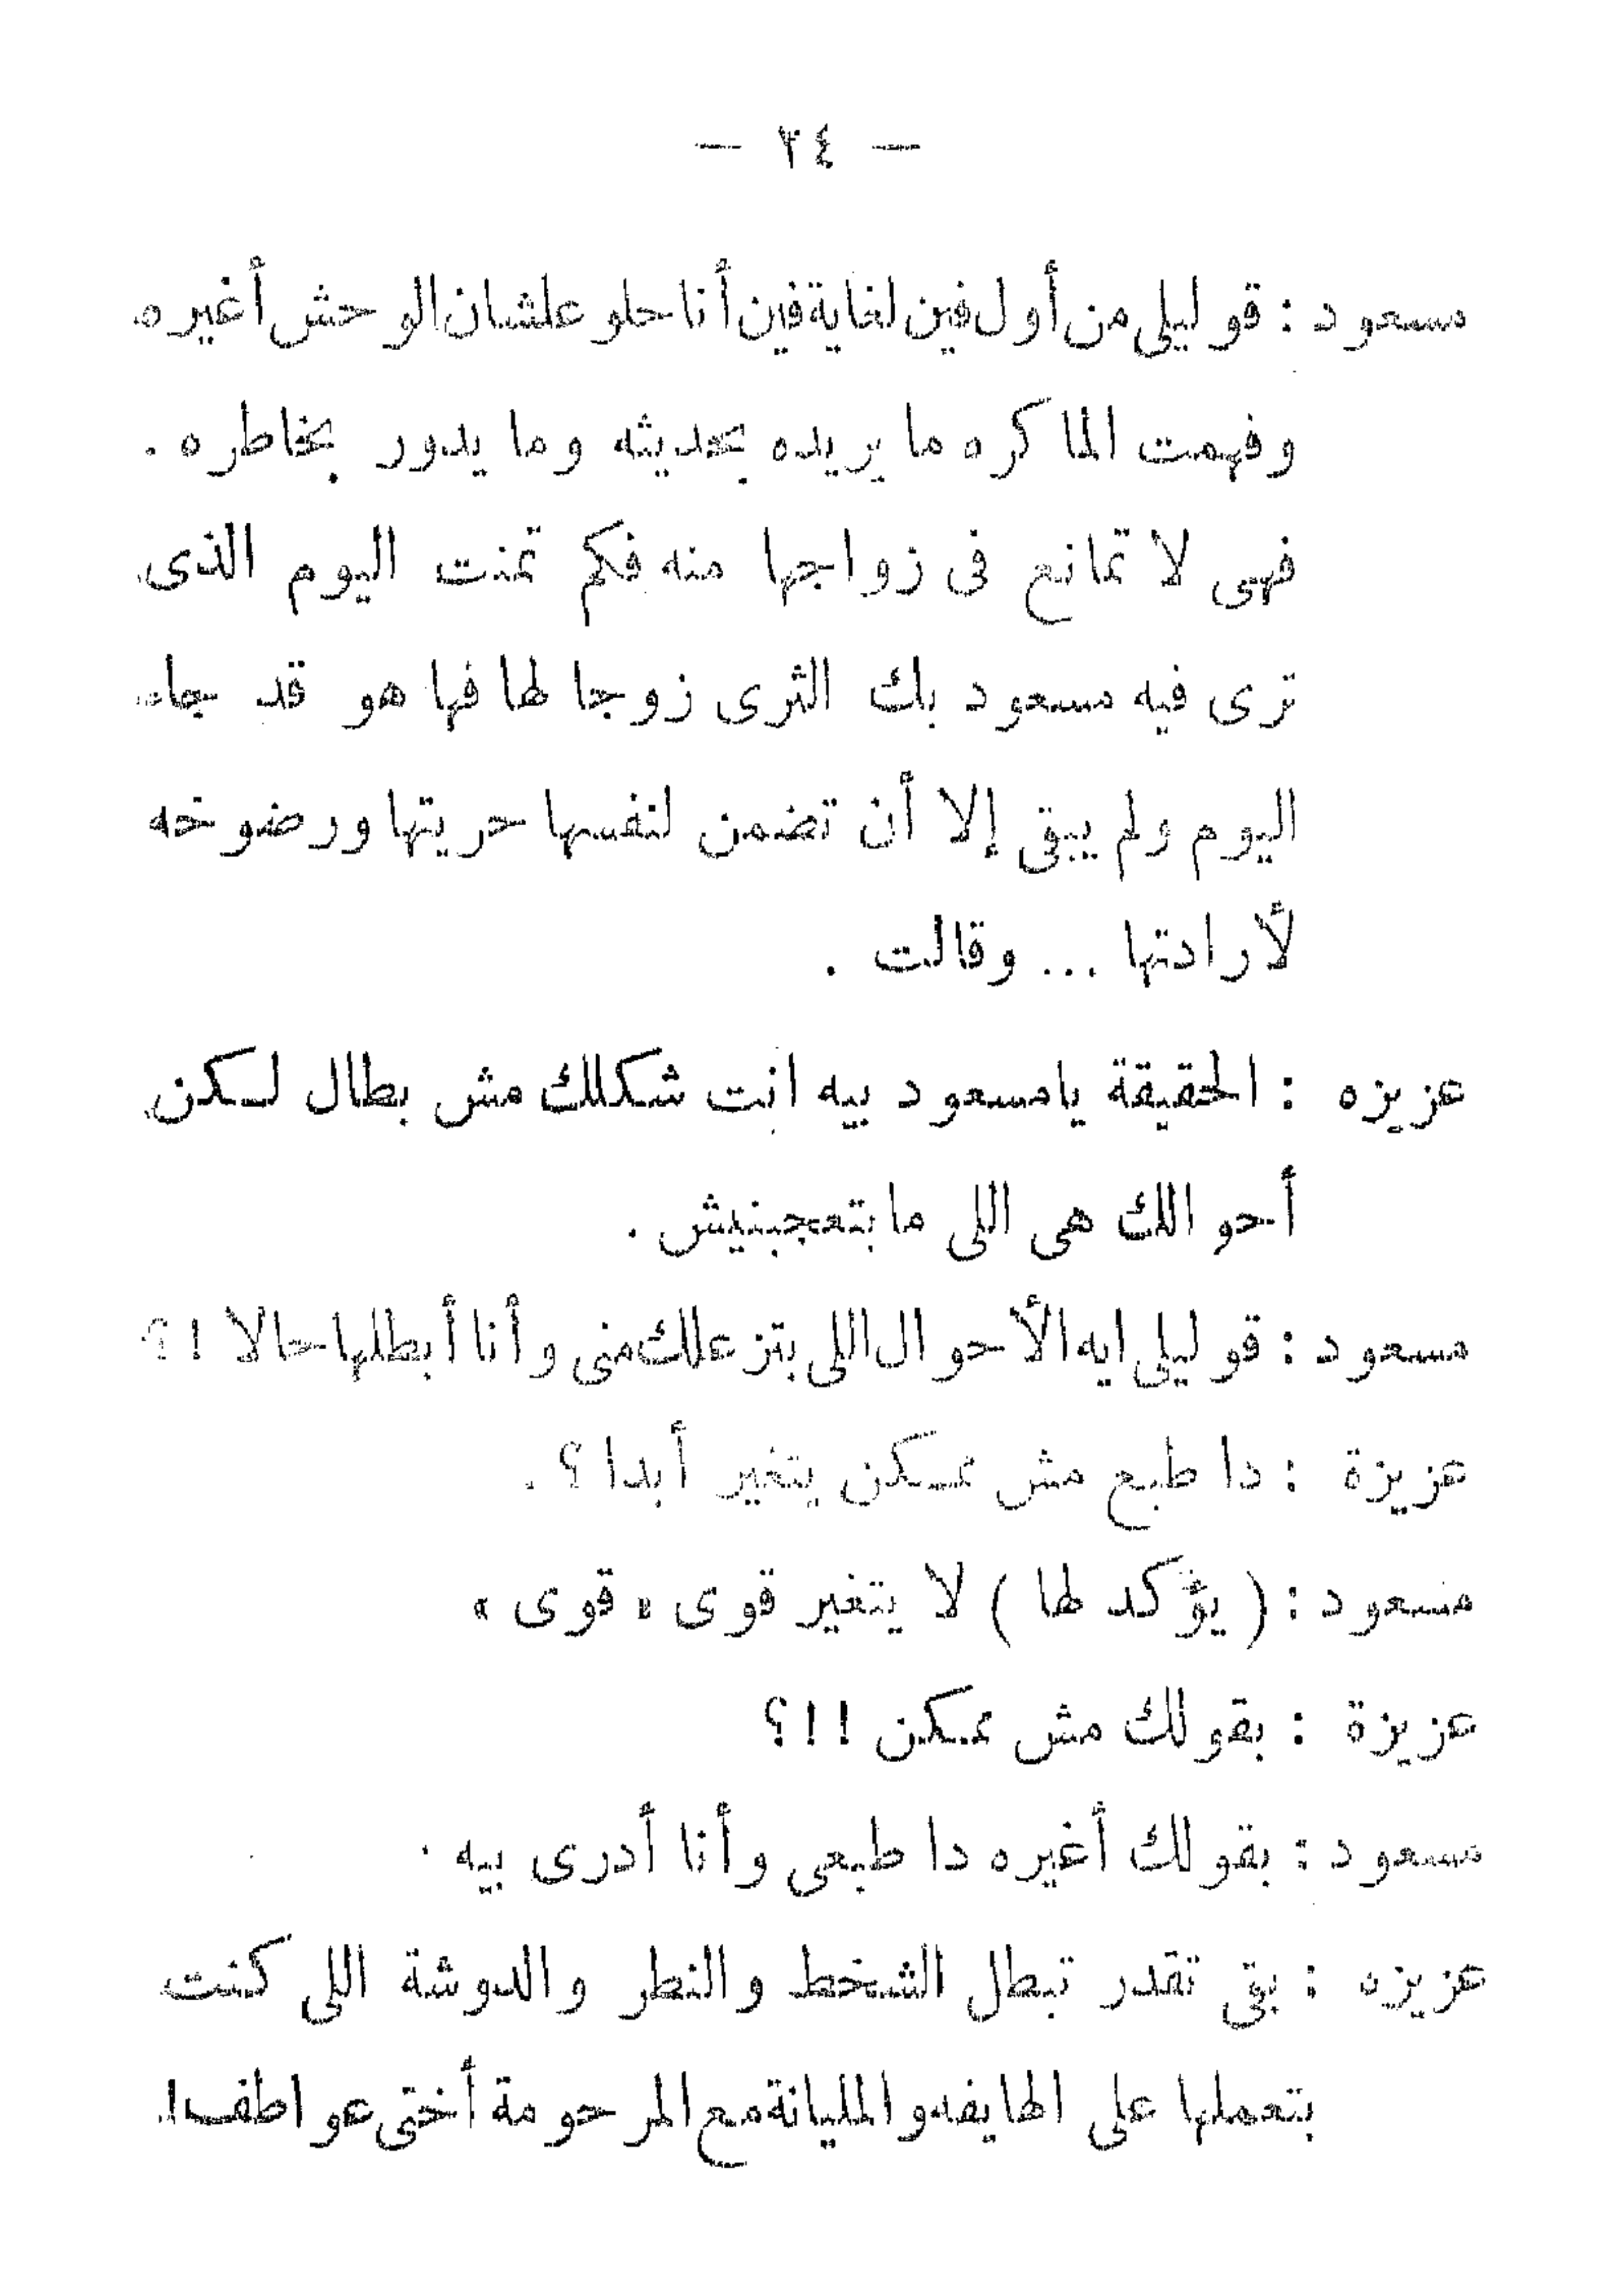 — ٢٤ —
مسعود : قوليلى من أول فين لغاية فين أنا حلو علشان الوحش أغيره
وفهمت الماكره ما يريده بحديثه وما يدور بخاطره .
فهى لا تمانع فى زواجها منه فكم تمنت اليوم الذى
ترى فيه مسعود بك الثرى زوجا لها فها هو قد جاء
اليوم ولم يبق إلا أن تضمن لنفسها حريتها ورضوخه
لأرادتها ... وقالت .
عزيزه : الحقيقة يامسعود بيه انت شكلك مش بطال لكن
أحوالك هى اللى مابتعجبنيش .
مسعود : قوليلى ايه الأحوال اللى بتزعلك منى وأنا أبطلها حالا !؟
عزيزة : دا طبع مش ممكن يتغير أبدا ؟ .
مسعود : ( يؤكد لها ) لا يتغير قوى « قوى »
عزيزة : بقولك مش ممكن !!؟
مسعود : بقولك أغيره دا طبعى وأنا أدرى بيه .
عزيزه : بقى تقدر تبطل الشخط والنطر والدوشة اللى كنت
بتعملها على الهايفه والمليانة مع المرحومة أختى عواطف !